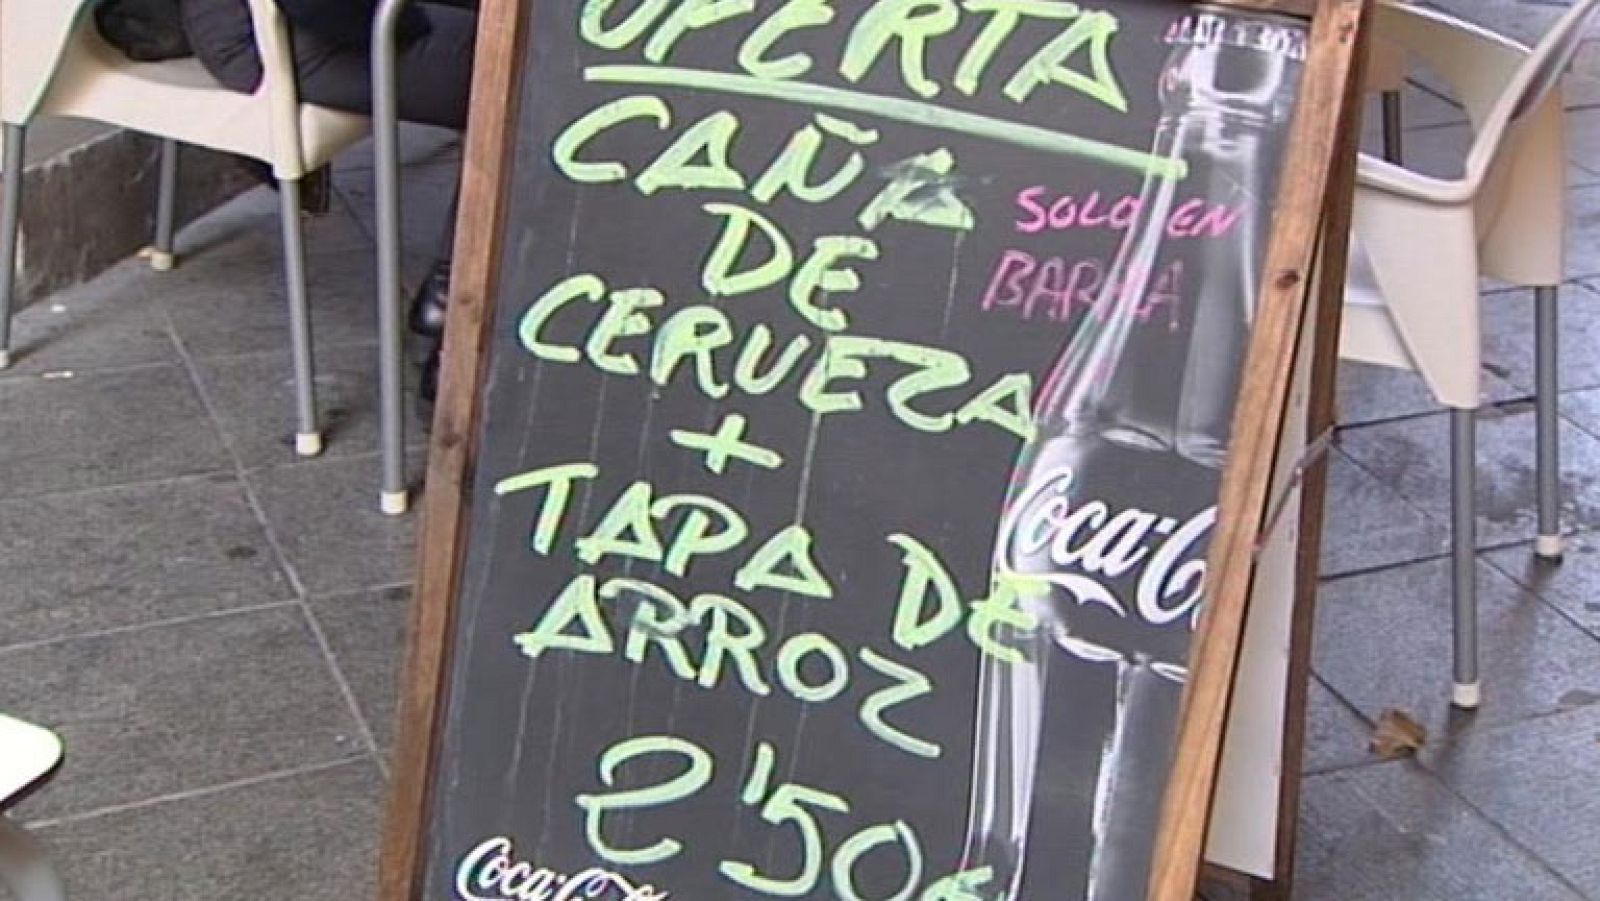 OFERTA
CAÑA
DE
CERVEZA
+
TAPA DE
ARROZ
2'50€
SOLO EN
BARRA
Coca-C
Coca-Co